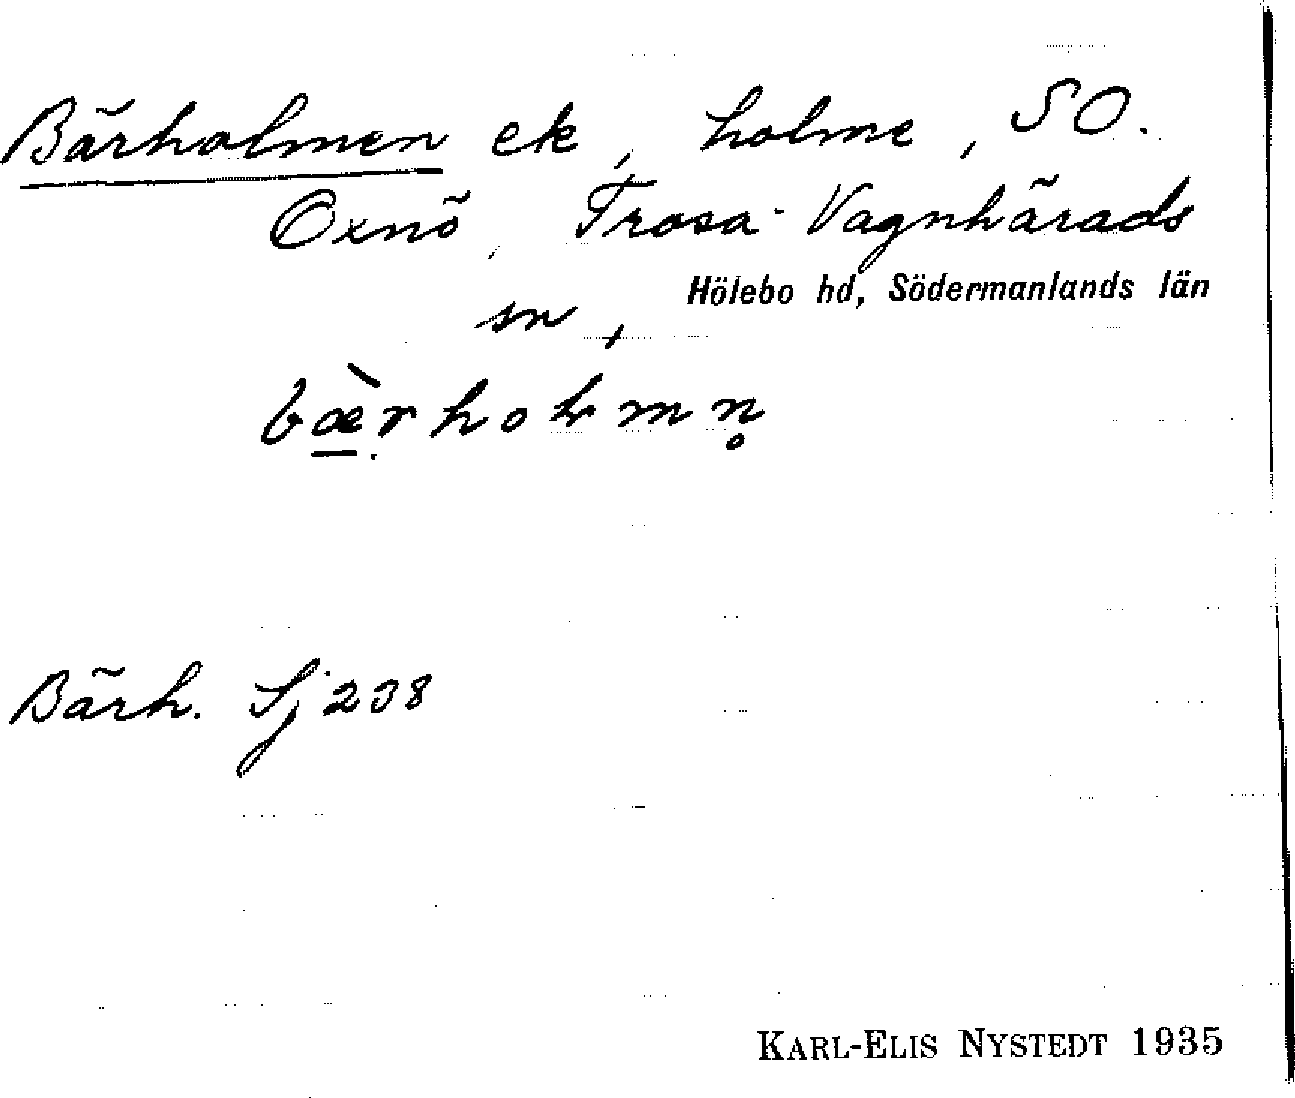 Bärholmen ek, holme, SO.
Oxnö, Trosa-Vagnhärads
sn, Hölebo hd, Södermanlands län
bæ̀rholmn̥
Bärh. Sj 238
KARL-ELIS NYSTEDT 1935